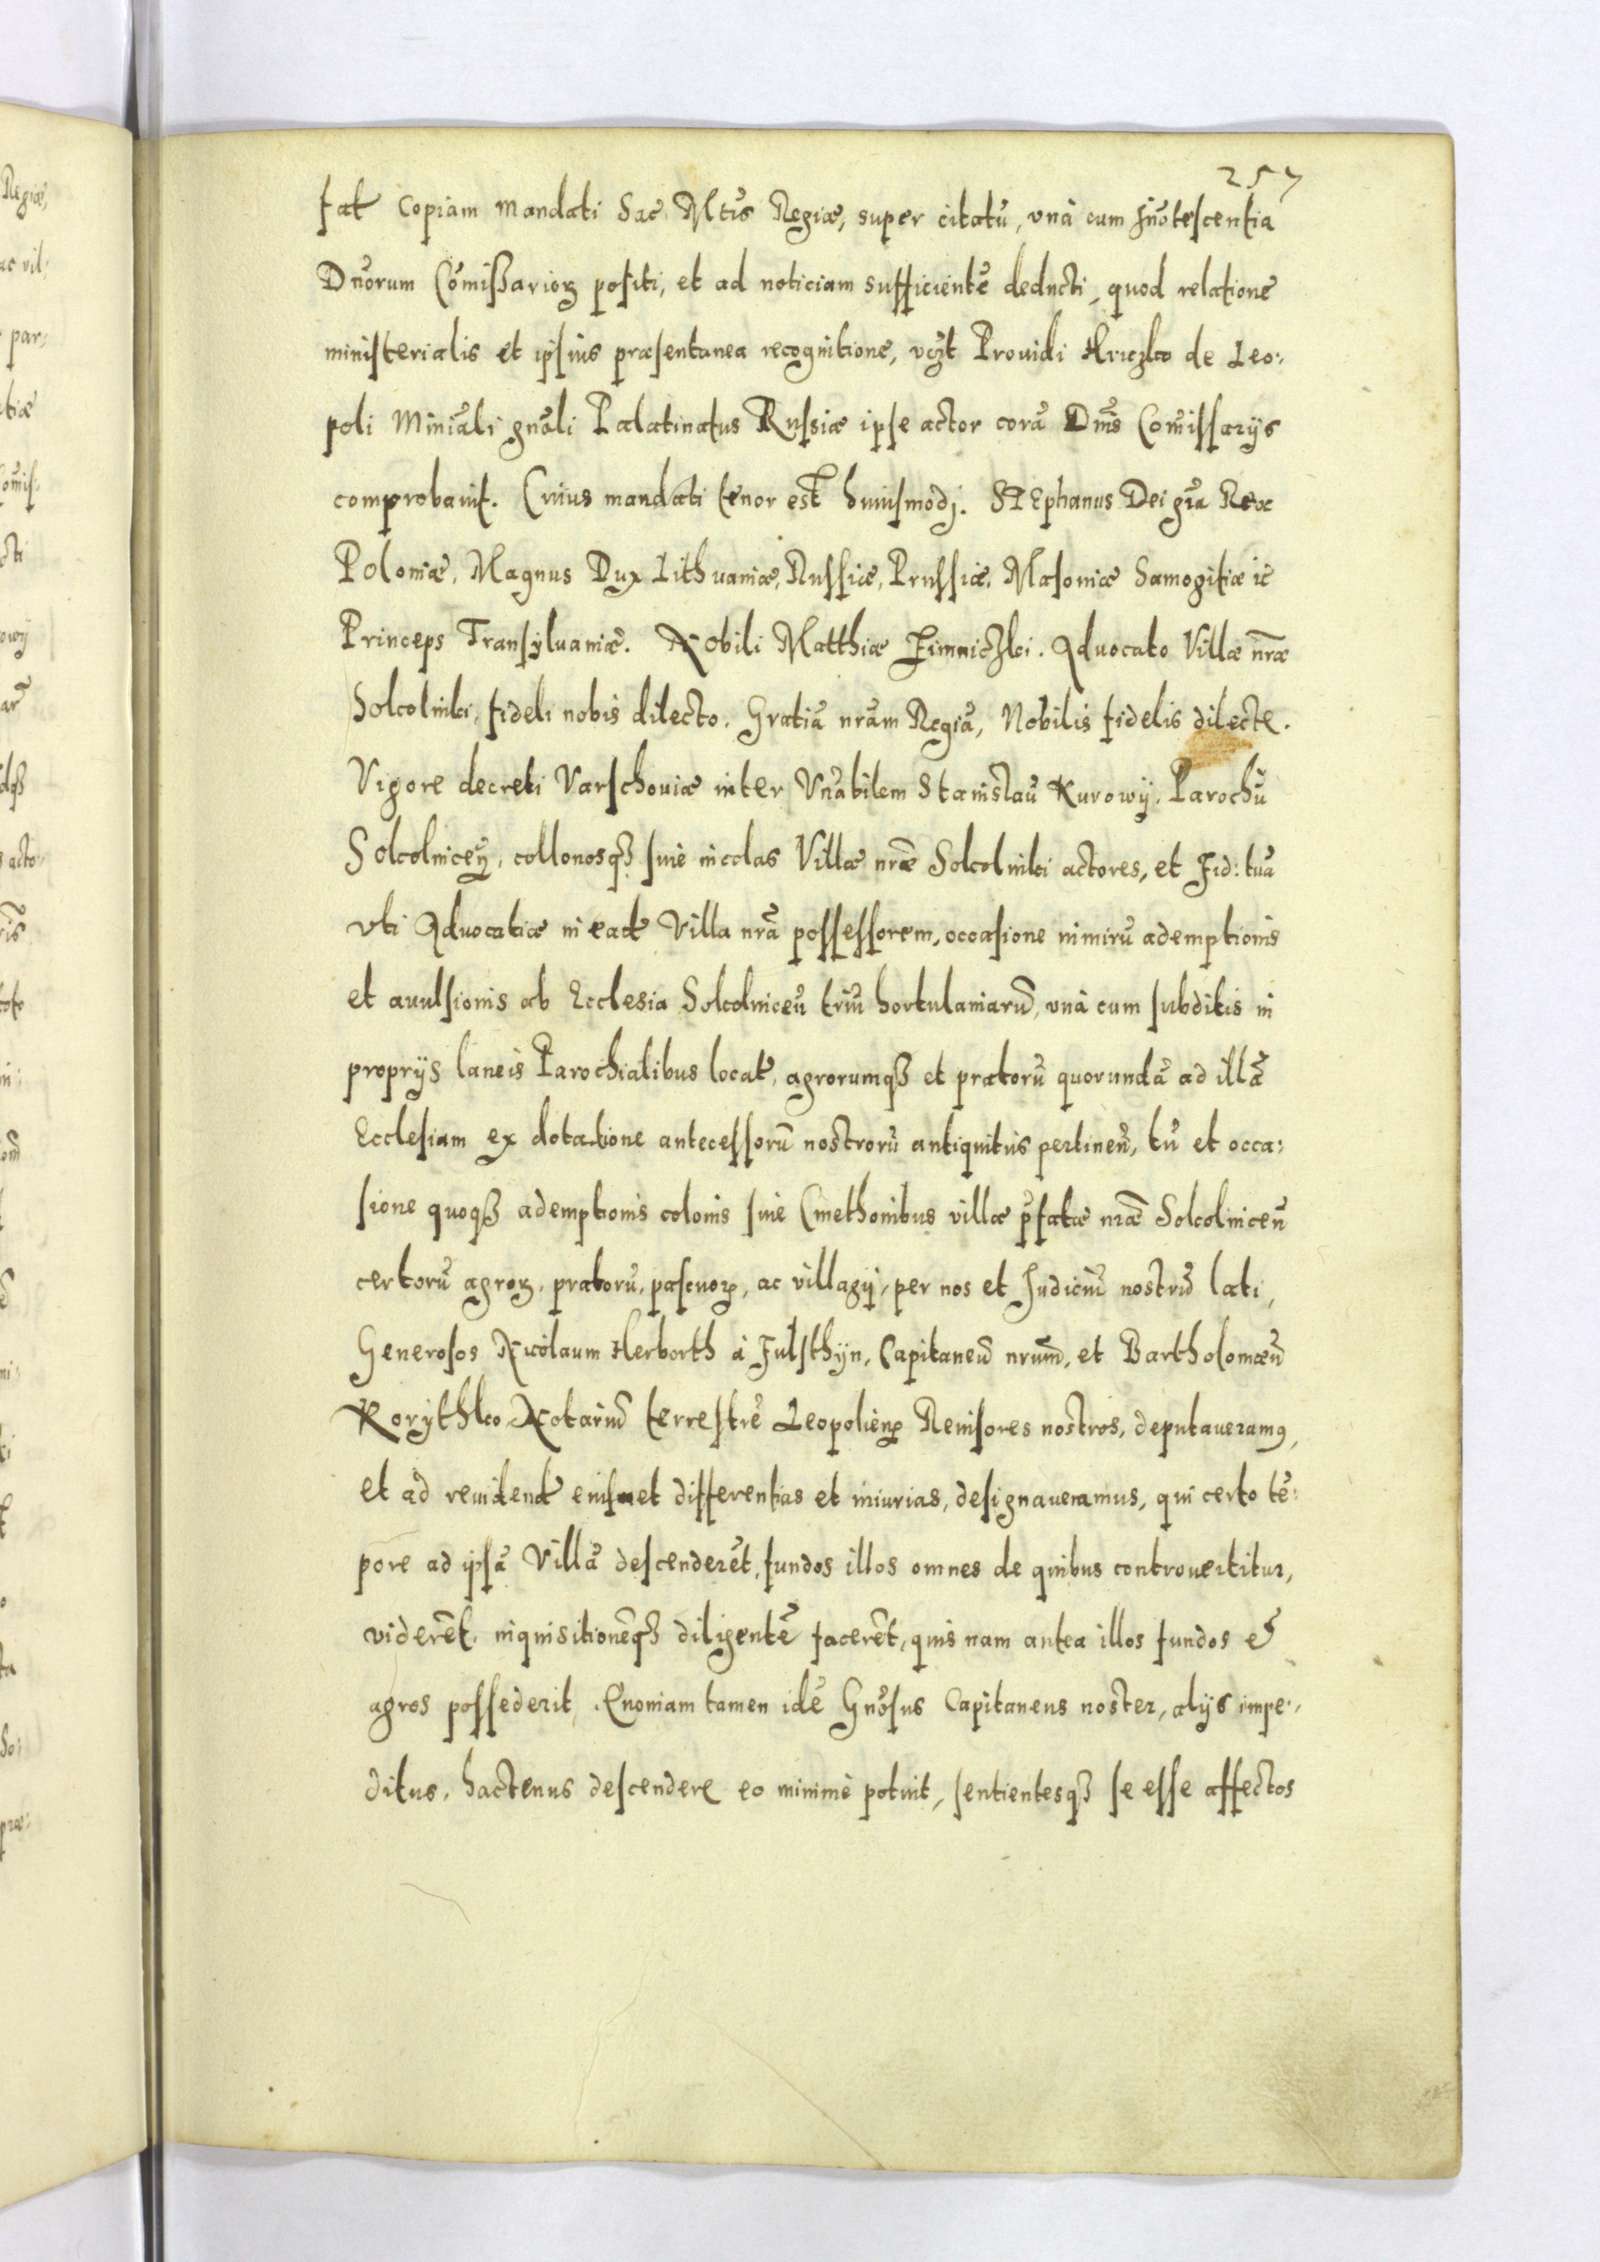 257
fat copiam mandati Sac Mtis Regiæ, super citatū, vnà cum Jnotescentia
Dnorum Comissarioꝝ positi, et ad noticiam sufficientē deducti, quod relatione
ministerialis et ipsius præsentanea recognitione, vczt Prouidi Hriczko de Leo:
poli Miniāli gnāli Palatinatus Russiæ ipse actor corā Dnis Comissarijs
comprobauit. Cuius mandati tenor est huiusmodj. STEphanus Dei gra Rex
Poloniæ, Magnus Dux Lithuaniæ, Russiæ, Prussiæ, Masoniæ Samogitiæ ꝛc
Princeps Transyluaniæ. Nobili Matthiæ Zimniczki. Aduocato Villæ nr̄æ
Sokolniki, fideli nobis dilecto. Gratiā nram Regiā, Nobilis fidelis dilecte.
Vigore decreti Varschouiæ inter Vnabilem Stanislaū Kurowij, Parochū
Sokolniceń, collonosqꝫ siue incolas Villæ nræ Sokolniki actores, et Fid: tuā
vti Aduocatiæ in ead Villa nrā possessorem, occasione nimirū ademptionis
et auulsionis ab Ecclesia Sokolniceń triū hortulaniarū, vnà cum subditis in
proprijs laneis Parochialibus locat, agrorumqꝫ et pratorū quorundā ad illā
Ecclesiam ex dotatione antecessorū nostrorū antiquitus pertineń, tū et occa:
sione quoqꝫ ademptionis colonis siue Cmethonibus villæ p̄fatæ nræ Sokolniceń
certorū agroꝝ, pratorū, pascuoꝝ, ac villagij, per nos et Judiciū nostrū lati,
Generosos Nicolaum Herborth à Fulsthyn, Capitaneū nrum, et Bartholomæū
Korythko Notariū terrestrē Leopolień Reuisores nostros, deputaueramꝰ,
et ad reuidend eiusmet differentias et iniurias, designaueramus, qui certo tē:
pore ad ipsā Villā descenderēt, fundos illos omnes de quibus controuertitur,
viderēt, inquisitionēqꝫ diligentē facerēt, quis nam antea illos fundos et
agros possederit, Quoniam tamen idē Gnōsus Capitaneus noster, alijs impe:
ditus, hactenus descendere eo minimè potuit, sentientesqꝫ se esse affectos